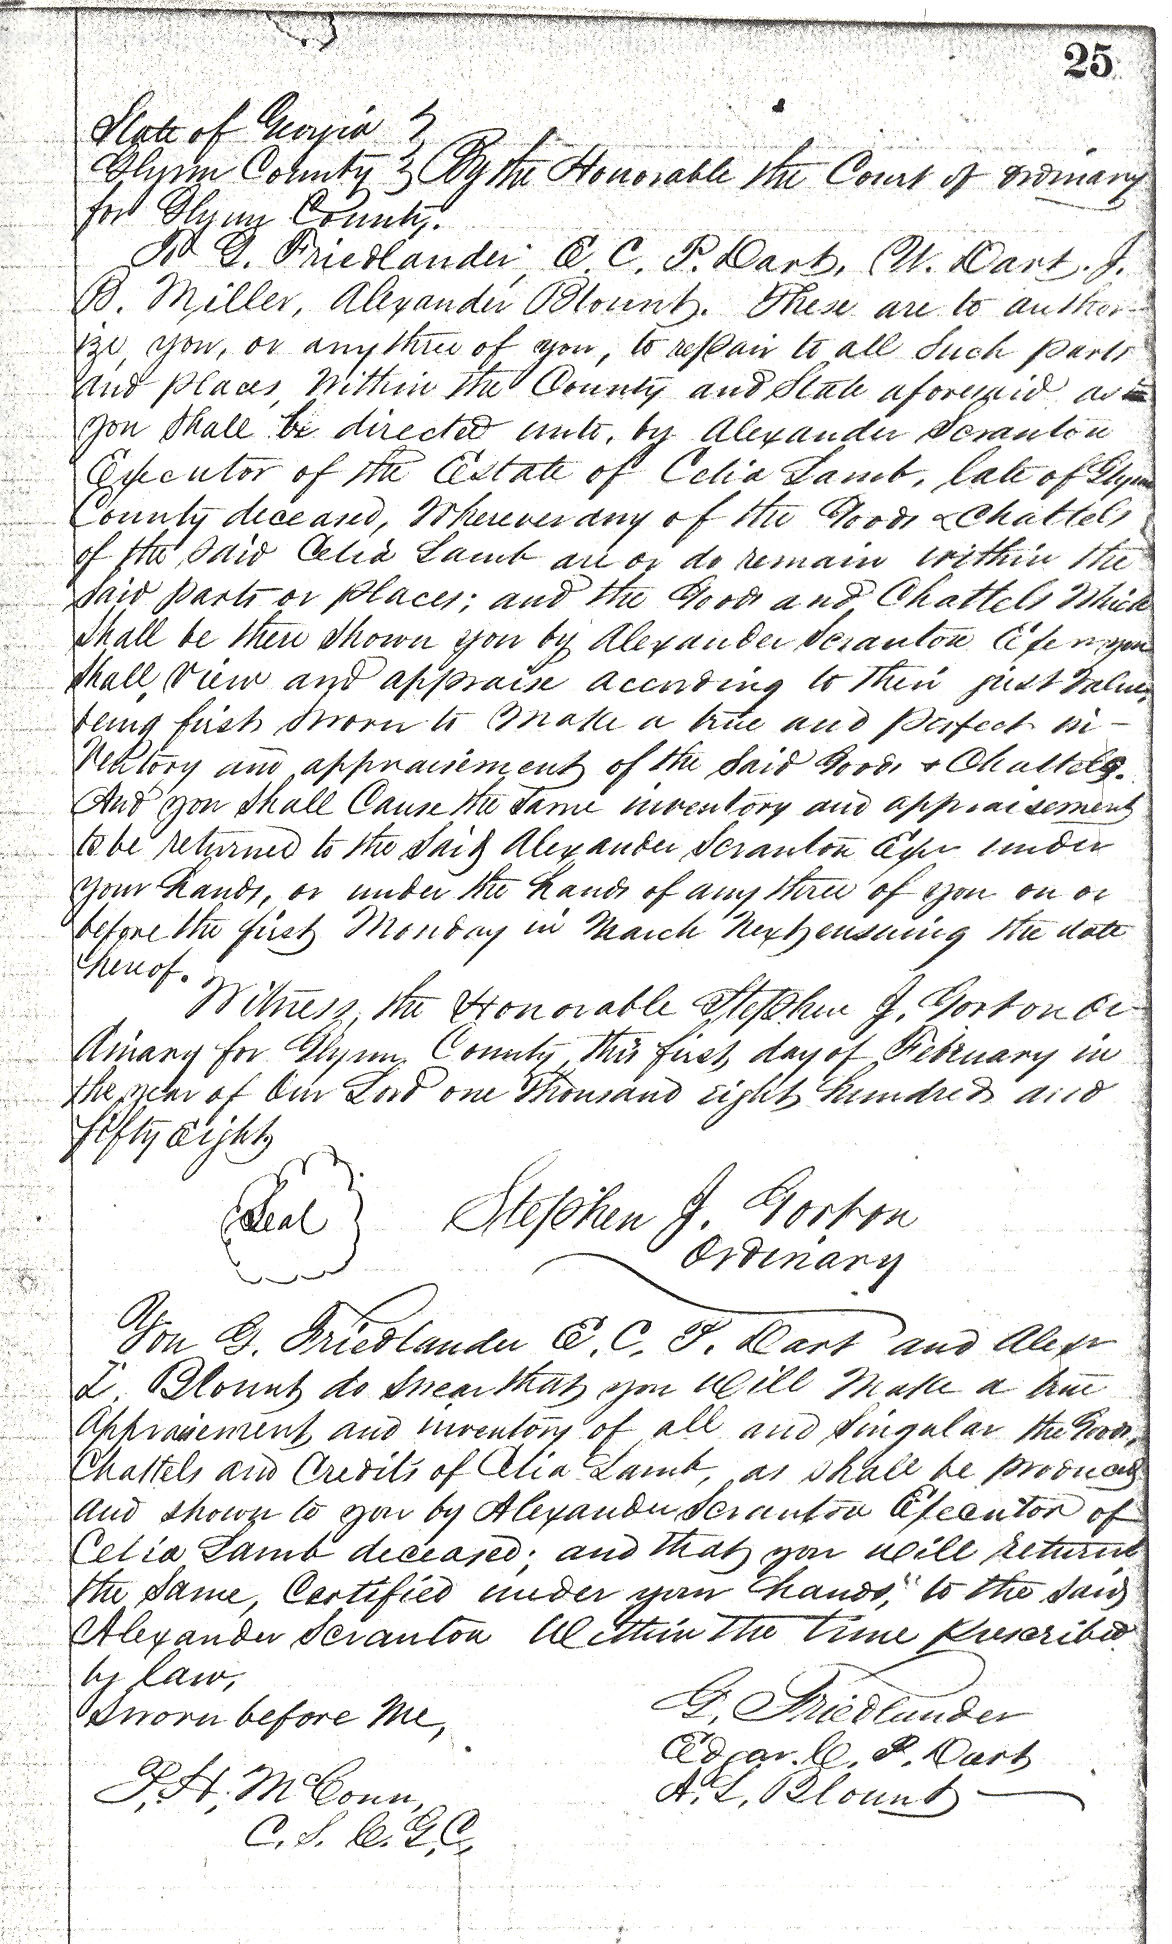 25
State of Georgia }
Glynn County } By the Honorable the Court of Ordinary
for Glynn County.
To G. Friedlander, E. C. P. Dart, W. Dart. J.
B. Miller, Alexander Blount. These are to author-
ize you, or any three of you, to repair to all such parts
and places, within the County and State aforesaid as
you shall be directed unto, by Alexander Scranton
Executor of the Estate of Celia Lamb, late of Glynn
County deceased, Wherever any of the Goods & Chattels
of the said Celia Lamb are or do remain within the
said parts or places; and the Goods and Chattels Which
shall be there shown you by Alexander Scranton Exr you
shall, View and appraise according to their just Value,
being first sworn to Make a true and perfect in-
Ventory and appraisement of the said Goods & Chattels.
And you shall Cause the same inventory and appraisement
to be returned to the said Alexander Scranton Exr under
your hands, or under the hands of any three of you on or
before the first Monday in March Next ensuing the date
hereof.
Witness, the Honorable Stephen J. Gorton Or-
dinary for Glynn County, this first day of February in
the year of Our Lord one Thousand eight hundred and
fifty Eight
Seal Stephen J. Gorton
Ordinary
You G. Friedlander E. C. P. Dart and Alexr
L. Blount do swear that you Will Make a true
Appraisement and inventory of all and Singular the Goods,
Chattels and Credits of Celia Lamb, as shall be produced
and shown to you by Alexander Scranton Executor of
Celia Lamb deceased; and that you Will return
the same, Certified under your "hands," to the said
Alexander Scranton Within The time prescribed
by law,
Sworn before Me,
G. Friedlander
Edgar. C. P. Dart
A. L. Blount
J. H. McConn,
C. S. C. G. C.